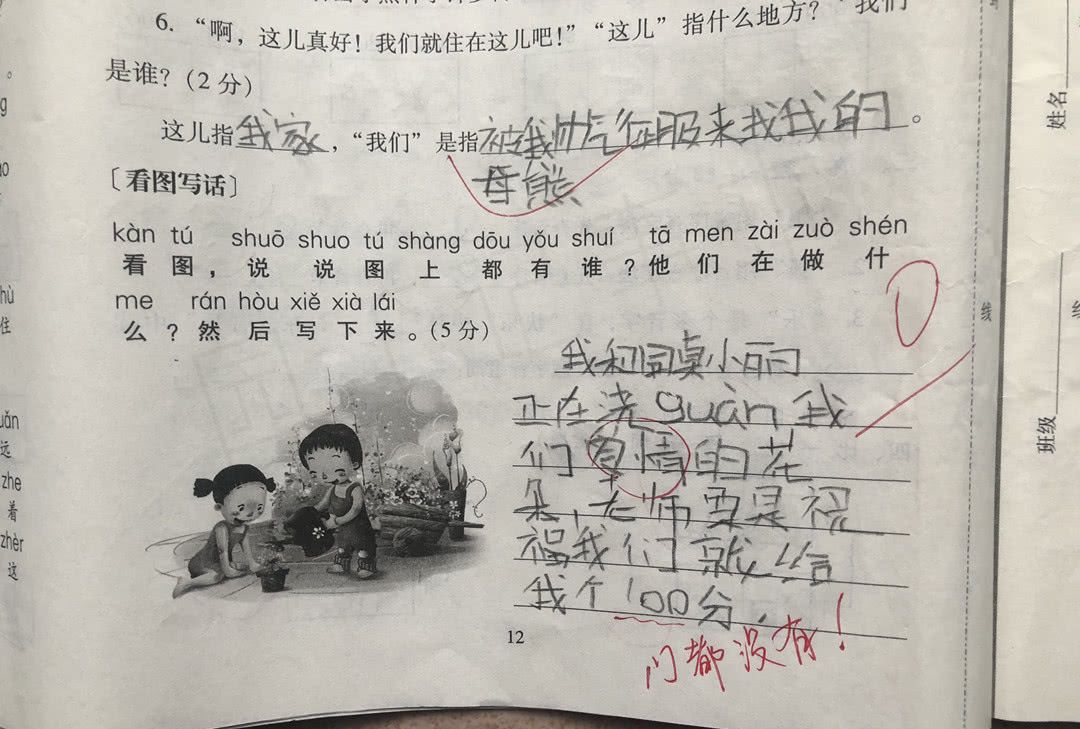 6. “啊，这儿真好！我们就住在这儿吧！”“这儿”指什么地方？“我们
是谁？(2 分)
这儿指我家，“我们”是指被我帅气征服来找我的。
母熊
〔看图写话〕
kàn tú shuō shuo tú shàng dōu yǒu shuí tā men zài zuò shén
看图，说说图上都有谁？他们在做什
me rán hòu xiě xià lái
么？然后写下来。(5 分)
0
我和同桌小丽
正在浇guàn我
们爱情的花
朵，老师要是祝
福我们就给
我个100分.
门都没有！
12
姓名
班级
线
uǎn
远
zhe
着
zhèr
这
hù
住